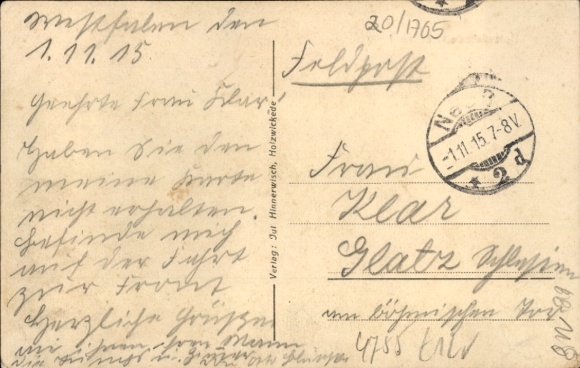 Westfalen den
1.11.15.
Geehrte Frau Klar!
Haben Sie den
meine Karte
nicht erhalten.
Befinde mich
auf der Fahrt
zur Front
Herzliche Grüße
Verlag: Jul Hinnerwisch, Holzwickede
20/1705
Feldpost
-1.11.15.7-8V.
* 2 d
Frau
Klar
Glatz Schlesien
am böhmischen Tor
4755